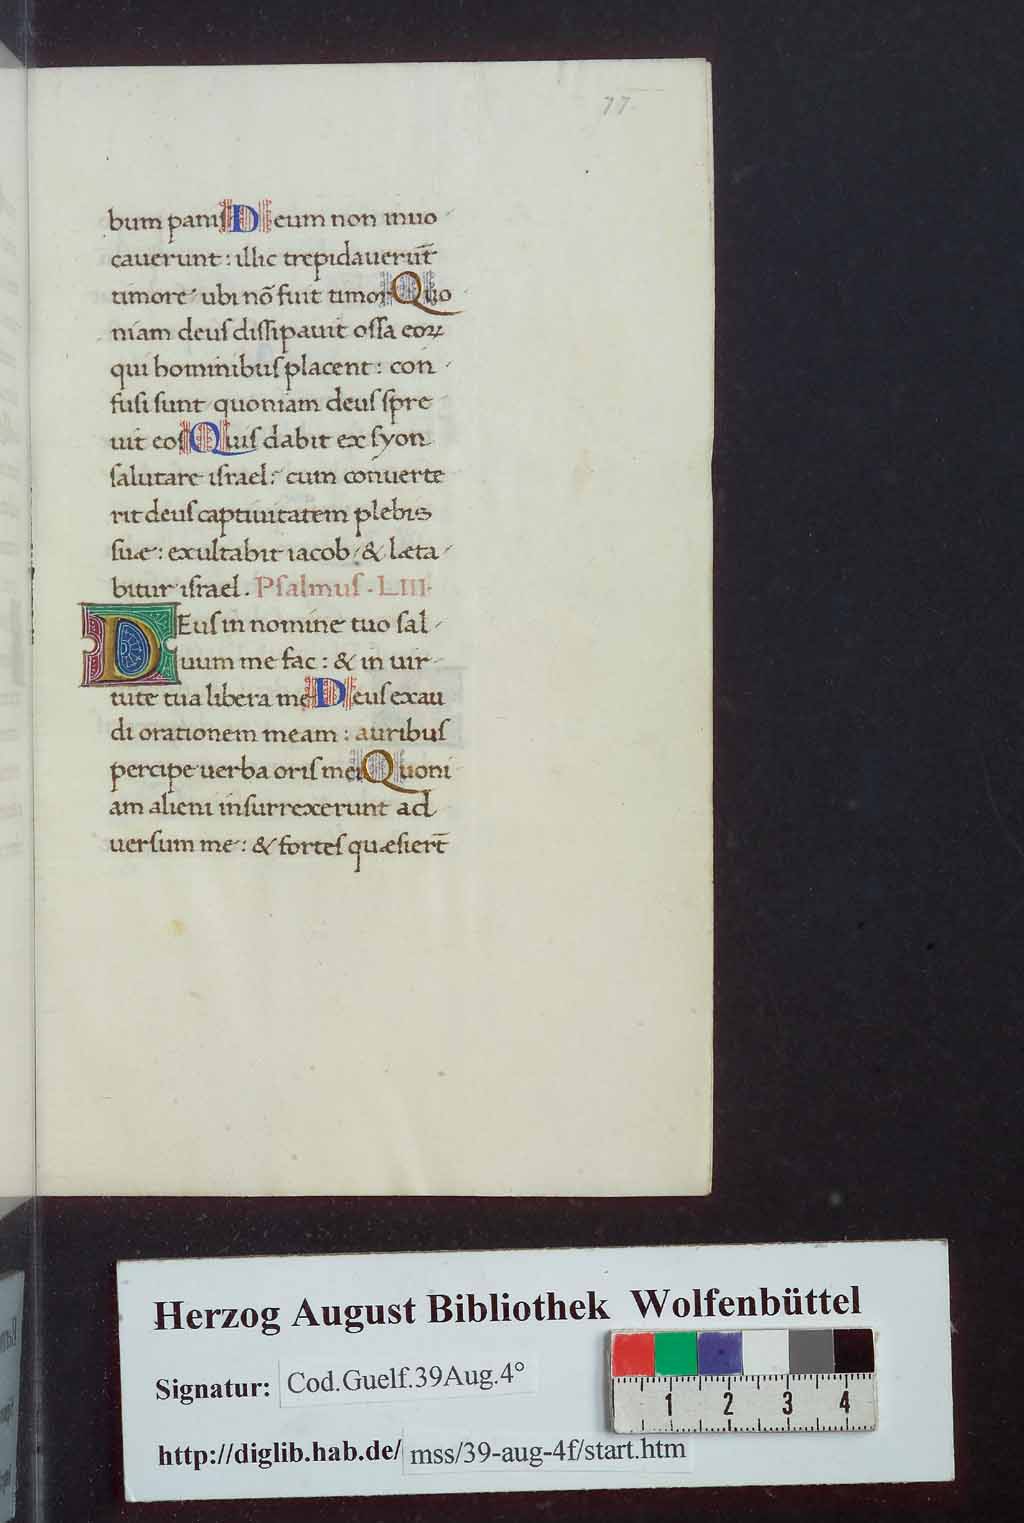 77
bum panis Deum non inuo
cauerunt: illic trepidauerūt
timore ubi nō fuit timor Quo
niam deus dissipauit ossa eoꝝ
qui hominibus placent: con
fusi sunt quoniam deus spre
uit eos Quis dabit ex syon
salutare israel: cum conuerte
rit deus captiuitatem plebis
suæ: exultabit iacob & læta
bitur israel. Psalmus. LIII.
DEus in nomine tuo sal
uum me fac: & in uir
tute tua libera me Deus exau
di orationem meam: auribus
percipe uerba oris mei Quoni
am alieni insurrexerunt ad
uersum me: & fortes quæsierт̄
Herzog August Bibliothek Wolfenbüttel
Signatur: Cod.Guelf.39Aug.4°
http://diglib.hab.de/mss/39-aug-4f/start.htm
1 2 3 4